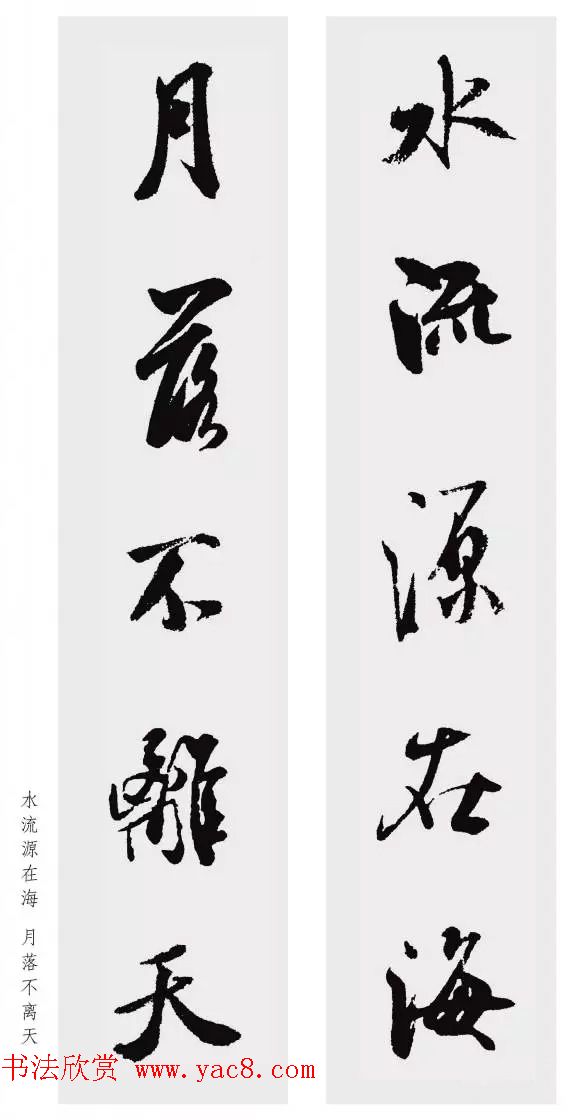 水流源在海
月落不離天
水流源在海 月落不离天
书法欣赏 www.yac8.com